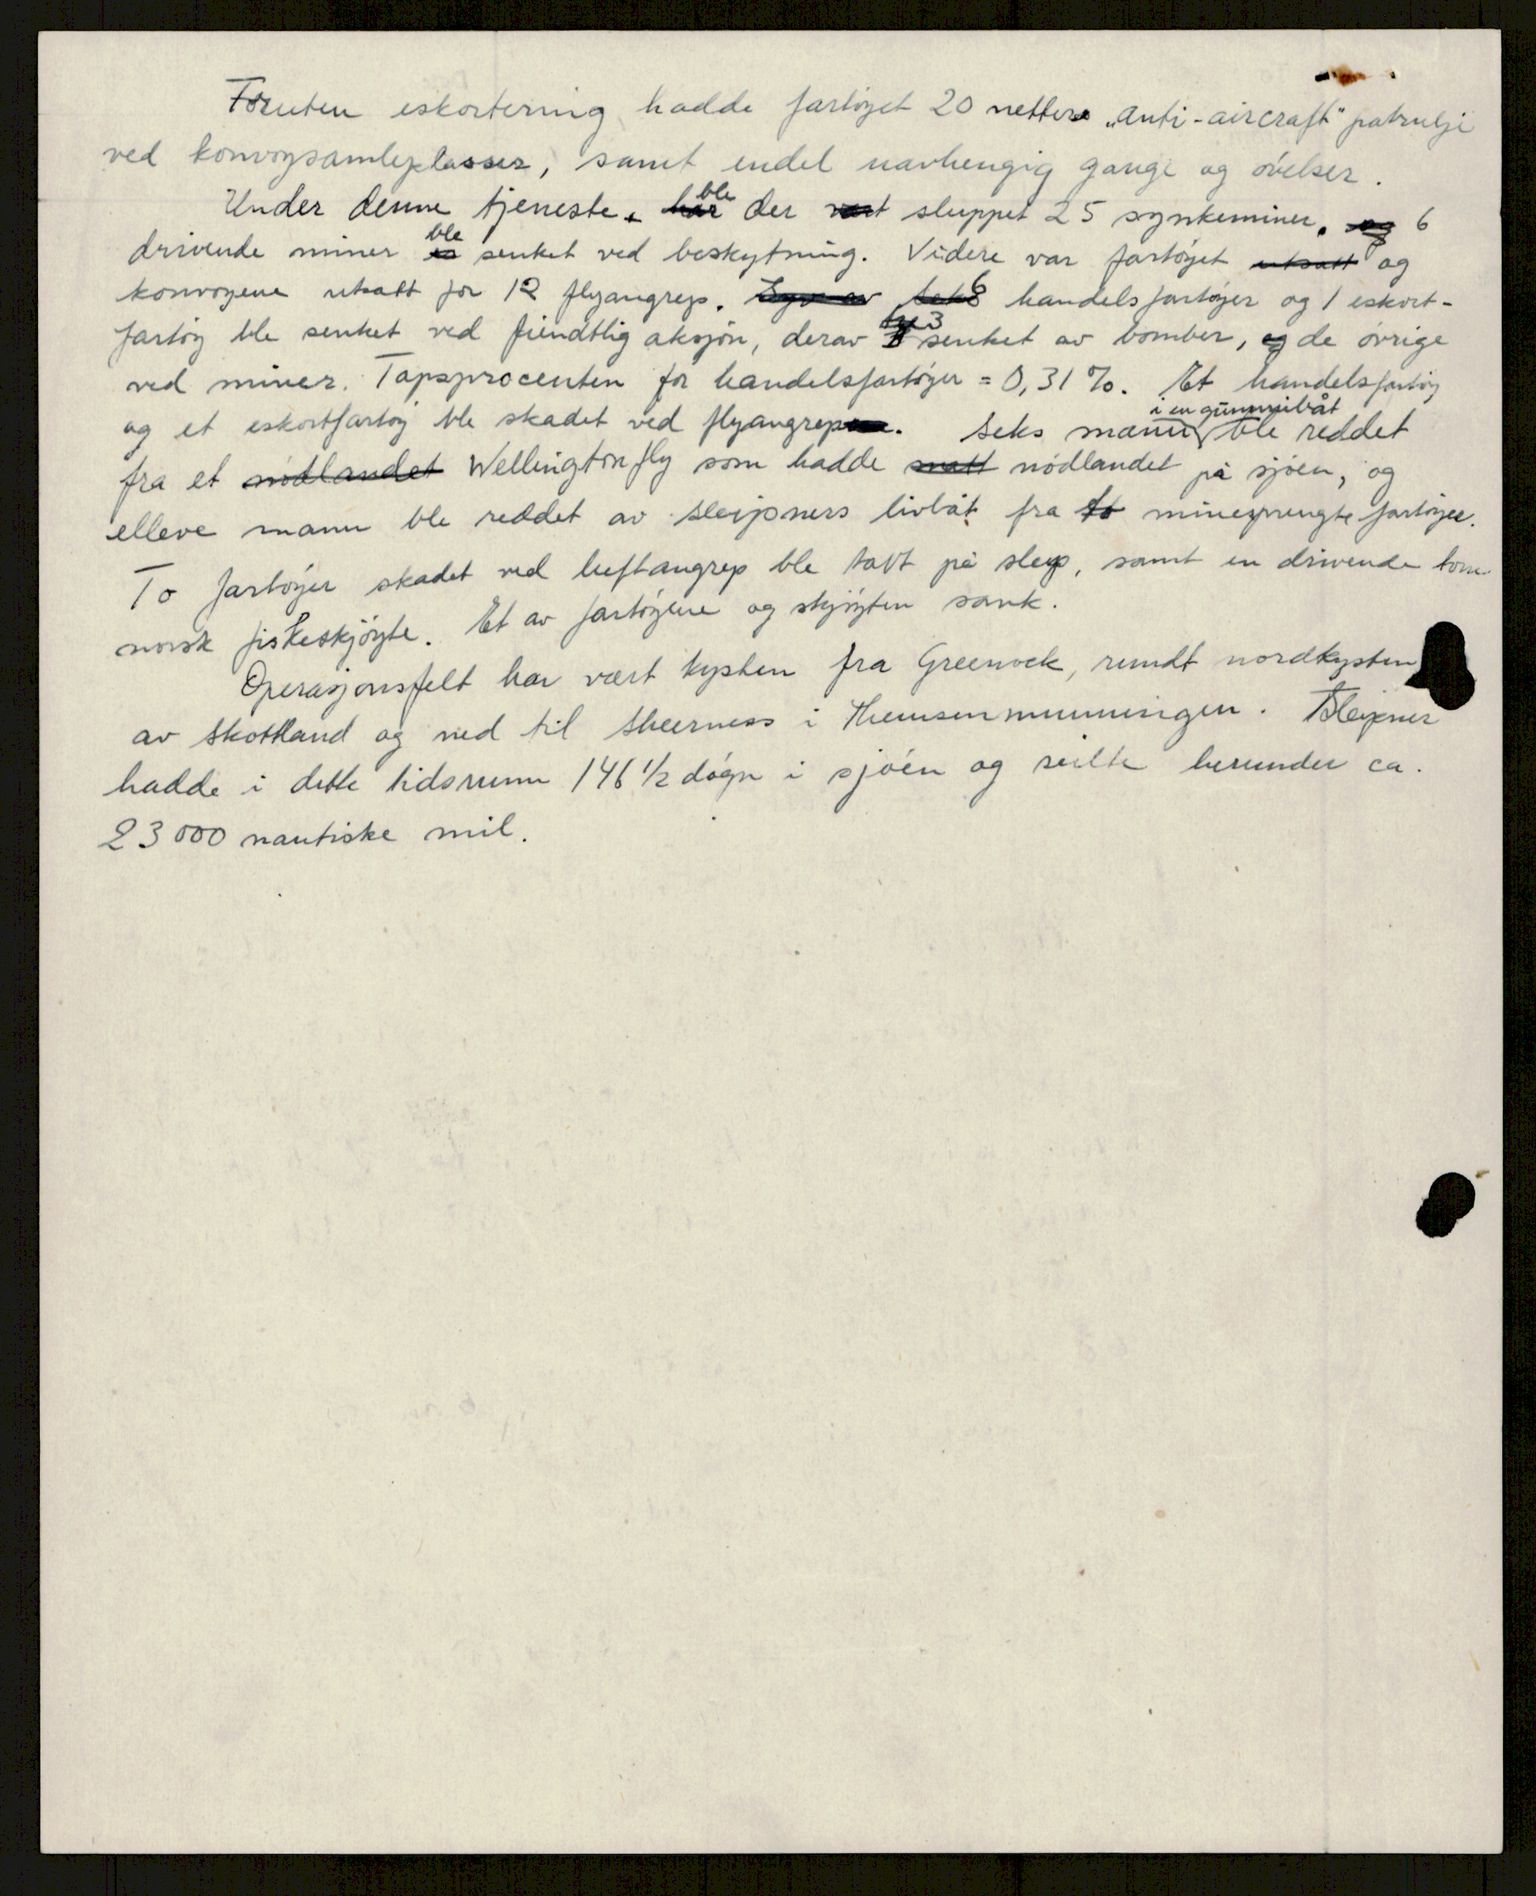 Foruten eskortering hadde fartøyet 20 netters „Anti-aircraft" patrulje
ved konvoysamleplasser, samt endel uavhengig gange og øvelser.
Under denne tjeneste ble der sluppet 25 synkeminer. 6
drivende miner ble senket ved beskytning. Videre var fartøyet og
konvoyene utsatt for 12 flyangrep. 6 handelsfartøyer og 1 eskort-
fartøy ble senket ved fiendtlig aksjon, derav 3 senket av bomber, de øvrige
ved miner. Tapsprocenten for handelsfartøyer = 0,31 %. Et handelsfartøy
og et eskortfartøy ble skadet ved flyangrep. Seks mann i en gummibåt ble reddet
fra et Wellington fly som hadde nødlandet på sjøen, og
elleve mann ble reddet av Sleipners livbåt fra minesprengte fartøyer.
To fartøyer skadet ved luftangrep ble tatt på slep, samt en drivende tom
norsk fiskeskjøyte. Et av fartøyene og skjøyten sank.
Operasjonsfelt har vært kysten fra Greenock, rundt nordkysten
av Skottland og ned til Sheerness i Themsenmunningen. Sleipner
hadde i dette tidsrum 146 1/2 døgn i sjøen og seilte herunder ca.
23 000 nautiske mil.